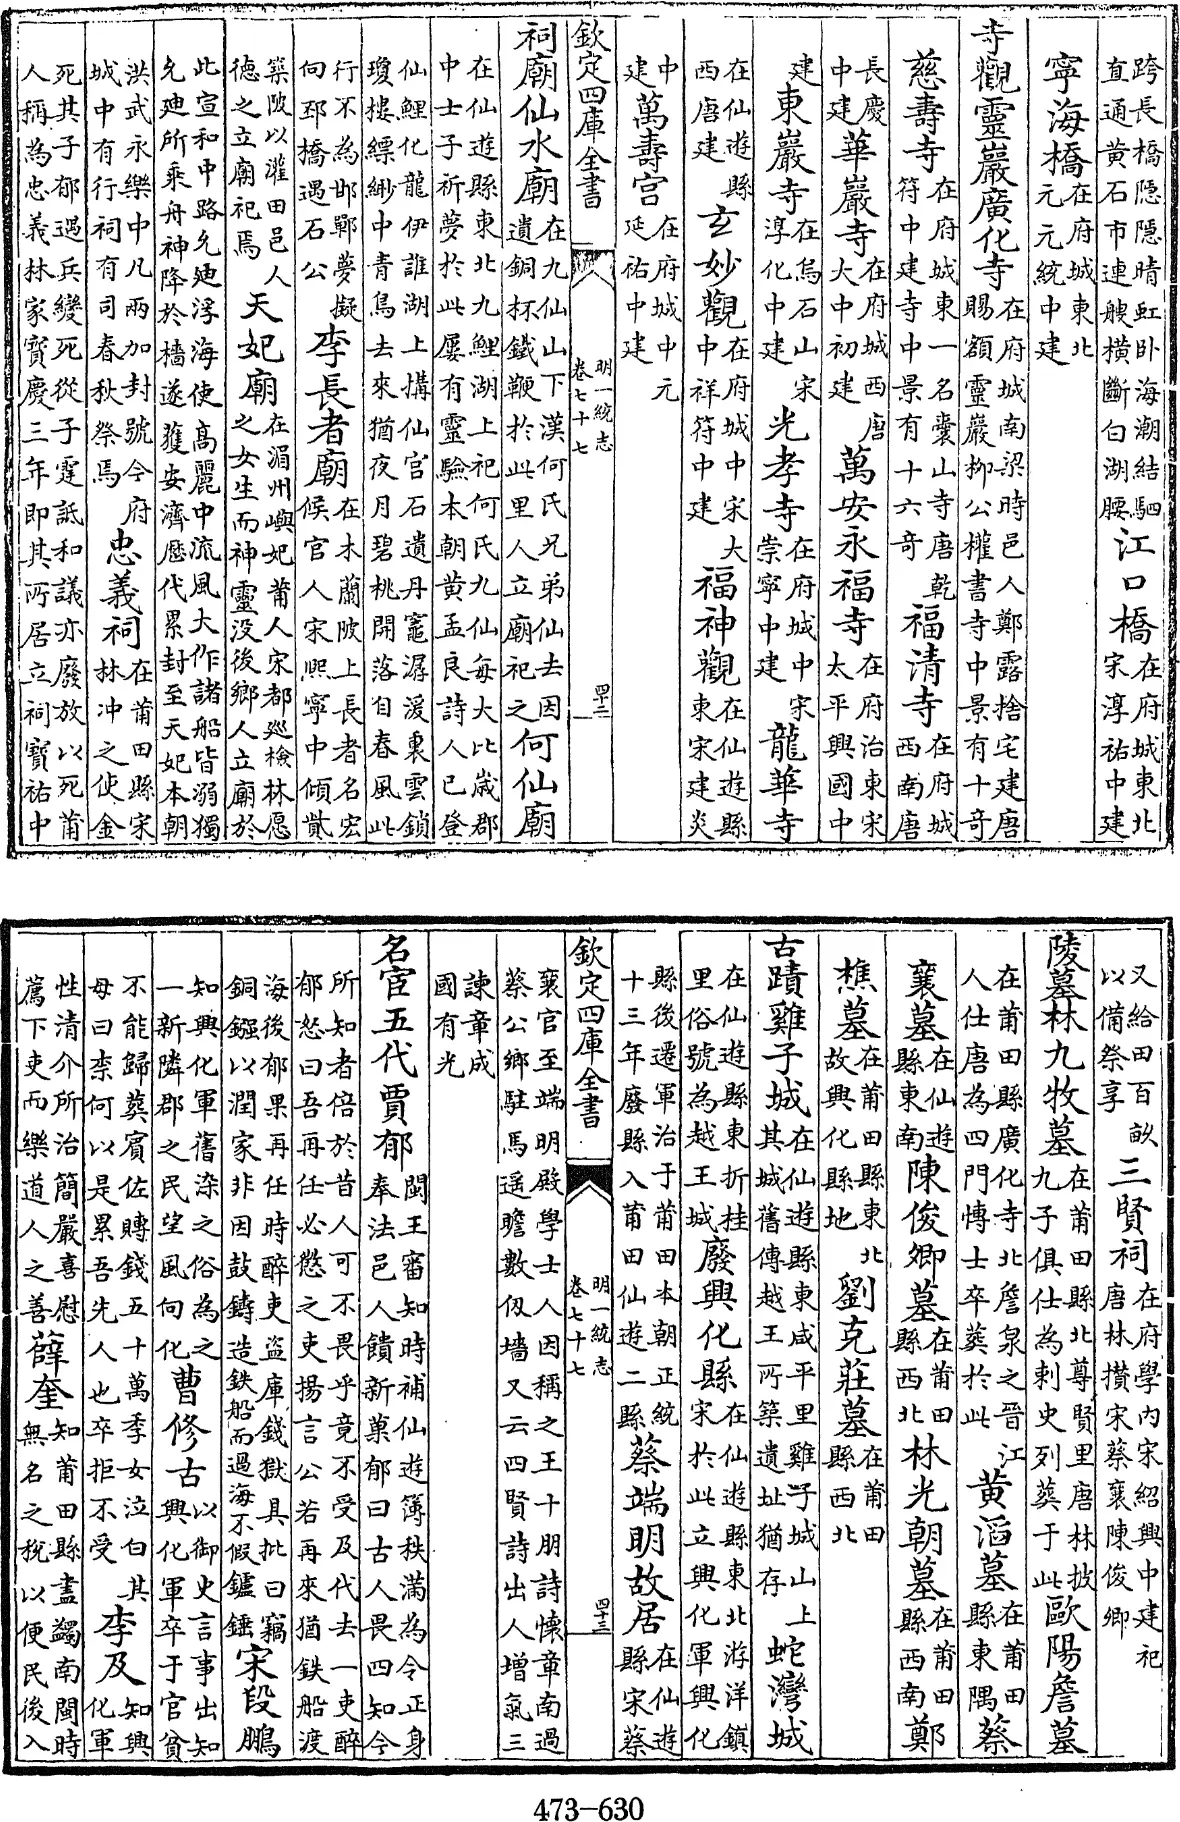 跨長橋隱隱晴虹卧海潮結駟直通黄石市連艘橫斷白湖腰江口橋在府城東北宋淳祐中建
寧海橋在府城東北元元統中建
寺觀靈巖廣化寺在府城南梁時邑人鄭露捨宅建唐賜額靈巖柳公權書寺中景有十奇
慈壽寺在府城東一名囊山寺唐乾符中建寺中景有十六奇福清寺在府城西南唐
長慶中建華嚴寺在府城西唐大中初建萬安永福寺在府治東宋太平興國中
建東巖寺在烏石山宋淳化中建光孝寺在府城中宋崇寧中建龍華寺
在仙遊縣西唐建玄妙觀在府城中宋大中祥符中建福神觀在仙遊縣東宋建炎
中建萬壽宫在府城中元延祐中建
欽定四庫全書 明一統志卷七十七 四十二
祠廟仙水廟在九仙山下漢何氏兄弟仙去因遺銅杯鐵鞭於此里人立廟祀之何仙廟
在仙遊縣東北九鯉湖上祀何氏九仙每大比歳郡中士子祈夢於此屢有靈驗本朝黄孟良詩人已登
仙鯉化龍伊誰湖上搆仙宫石遺丹竈潺湲裏雲鎖瓊樓縹緲中青鳥去來猶夜月碧桃開落自春風此
行不為邯鄲夢擬向邳橋遇石公李長者廟在木蘭陂上長者名宏候官人宋熙寧中傾貲
築陂以灌田邑人德之立廟祀焉天妃廟在湄州嶼妃莆人宋都廵檢林愿之女生而神靈没後鄉人立廟於
此宣和中路允廸浮海使高麗中流風大作諸船皆溺獨允廸所乘舟神降於檣遂獲安濟歴代累封至天妃本朝
洪武永樂中凡兩加封號今府城中有行祠有司春秋祭焉忠義祠在莆田縣宋林冲之使金
死其子郁遇兵變死從子霆詆和議亦廢放以死莆人稱為忠義林家寳慶三年即其所居立祠寳祐中
又給田百畝以備祭享三賢祠在府學内宋紹興中建祀唐林攅宋蔡襄陳俊卿
陵墓林九牧墓在莆田縣北尊賢里唐林披九子俱仕為刺史列葬于此歐陽詹墓
在莆田縣廣化寺北詹泉之晉江人仕唐為四門博士卒葬於此黄滔墓在莆田縣東隅蔡
襄墓在仙遊縣東南陳俊卿墓在莆田縣西北林光朝墓在莆田縣西南鄭
樵墓在莆田縣東北故興化縣地劉克莊墓在莆田縣西北
古蹟雞子城在仙遊縣東咸平里雞子城山上其城舊傳越王所築遺址猶存蛇灣城
在仙遊縣東折桂里俗號為越王城廢興化縣在仙遊縣東北游洋鎮宋於此立興化軍興化
縣後遷軍治于莆田本朝正統十三年廢縣入莆田仙遊二縣蔡端明故居在仙遊縣宋蔡
襄官至端明殿學士人因稱之王十朋詩懐章南過蔡公鄉駐馬遥瞻數仭墻又云四賢詩出人增氣三
諫章成國有光
欽定四庫全書 明一統志卷七十七 四十三
名宦五代賈郁閩王審知時補仙遊簿秩滿為令正身奉法邑人饋新菓郁曰古人畏四知今
所知者倍於昔人可不畏乎竟不受及代去一吏醉郁怒曰吾再任必懲之吏揚言公若再來猶鉄船渡
海後郁果再任時醉吏盗庫錢獄具批曰竊銅鏹以潤家非因鼓鑄造鉄船而過海不假鑪錘宋段鵬
知興化軍舊染之俗為之一新隣郡之民望風向化曹修古以御史言事出知興化軍卒于官貧
不能歸葬賓佐賻錢五十萬季女泣白其母曰柰何以是累吾先人也卒拒不受李及知興化軍
性清介所治簡嚴喜慰薦下吏而樂道人之善薛奎知莆田縣盡蠲南閩時無名之稅以便民後入
473-630